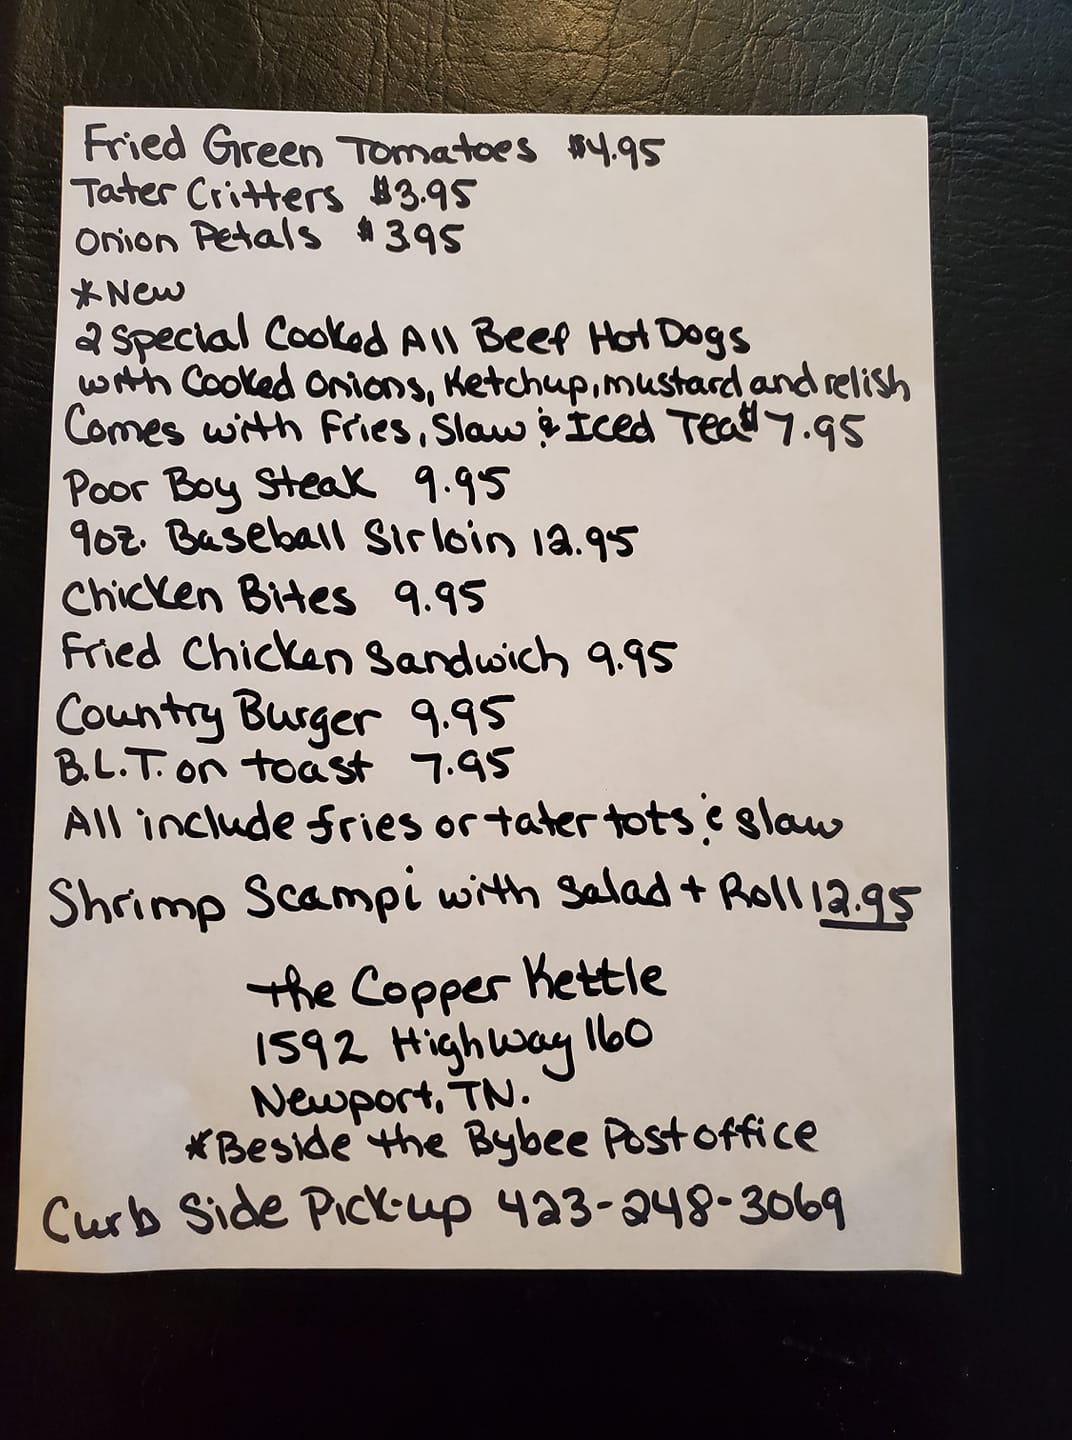 Fried Green Tomatoes $4.95
Tater Critters $3.95
Onion Petals $395
*New
2 Special Cooked All Beef Hot Dogs
with Cooked Onions, Ketchup, mustard and relish
Comes with Fries, Slaw & Iced Tea $7.95
Poor Boy Steak 9.95
9oz. Baseball Sirloin 12.95
Chicken Bites 9.95
Fried Chicken Sandwich 9.95
Country Burger 9.95
B.L.T. on toast 7.95
All include fries or tater tots & slaw
Shrimp Scampi with Salad + Roll 12.95
the Copper Kettle
1592 Highway 160
Newport, TN.
*Beside the Bybee Post office
Curb Side Pick-up 423-248-3069